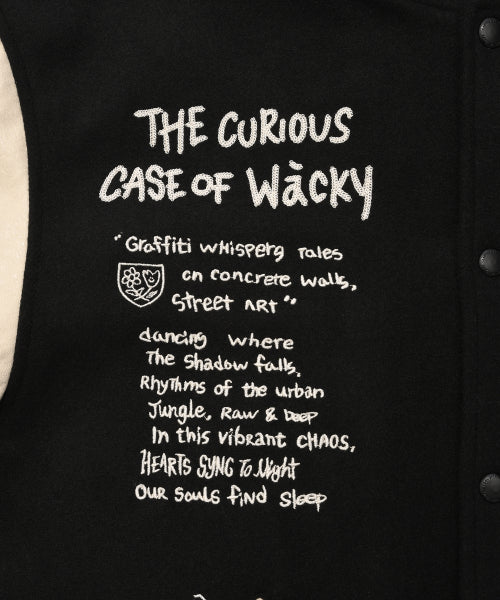 THE CURIOUS
CASE OF Wàcky
"Graffiti WHisperg Tales
on concrete walls,
Street ART"
dancing where
The shadow falls.
Rhythms of the urban
Jungle, Raw & Deep
In this vibrant CHAOS,
HEARTS SYNG To Night
OUR Souls find Sleep